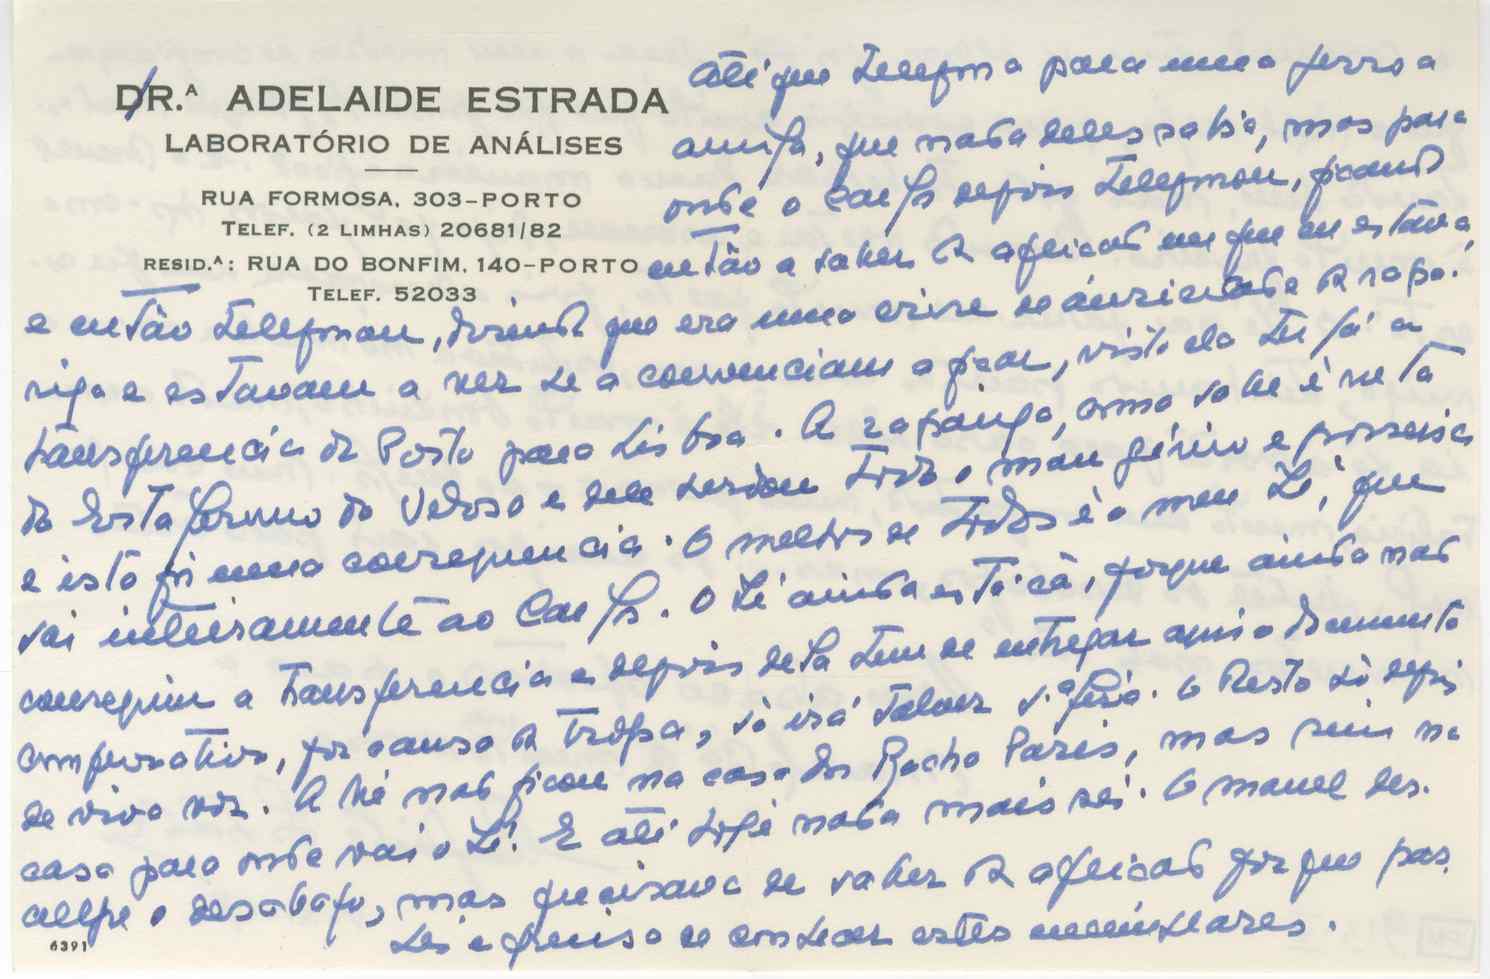 DR.ª ADELAIDE ESTRADA
LABORATÓRIO DE ANÁLISES
RUA FORMOSA, 303-PORTO
TELEF. (2 LIMHAS) 20681/82
RESID.ª: RUA DO BONFIM, 140-PORTO
TELEF. 52033
até que telefona para uma
amiga, que nada deles sabia, mas para
onde o Carlos depois telefonou, ficando
então a saber da aflicão em que eu estava,
e então telefonou, dizendo que era uma crise de da rapa-
riga e estavam a ver se a convenciam a ficar, visto ela ter já a
transferencia do Porto para Lisboa. A rapariga, como sabe é neta
do do Veloso e dele herdou todo o mau génio e
e isto foi uma consequencia. O melhor de todos é o meu Zé, que
sai inteiramente ao Carlos. O Zé ainda está cá, porque ainda não
conseguiu a transferencia e depois desta tem de entregar aqui o documento
comprovativo, por causa da tropa, só irá talvez 5.ª feira. O resto só depois
de viva voz. A não ficou na casa dos Rocha Paris, mas sim na
casa para onde vai o Zé. E até hoje nada mais sei. O Manel des-
culpe o desabafo, mas precisava de saber da aflicão porque pas-
sei e preciso de conhecer estes
6391